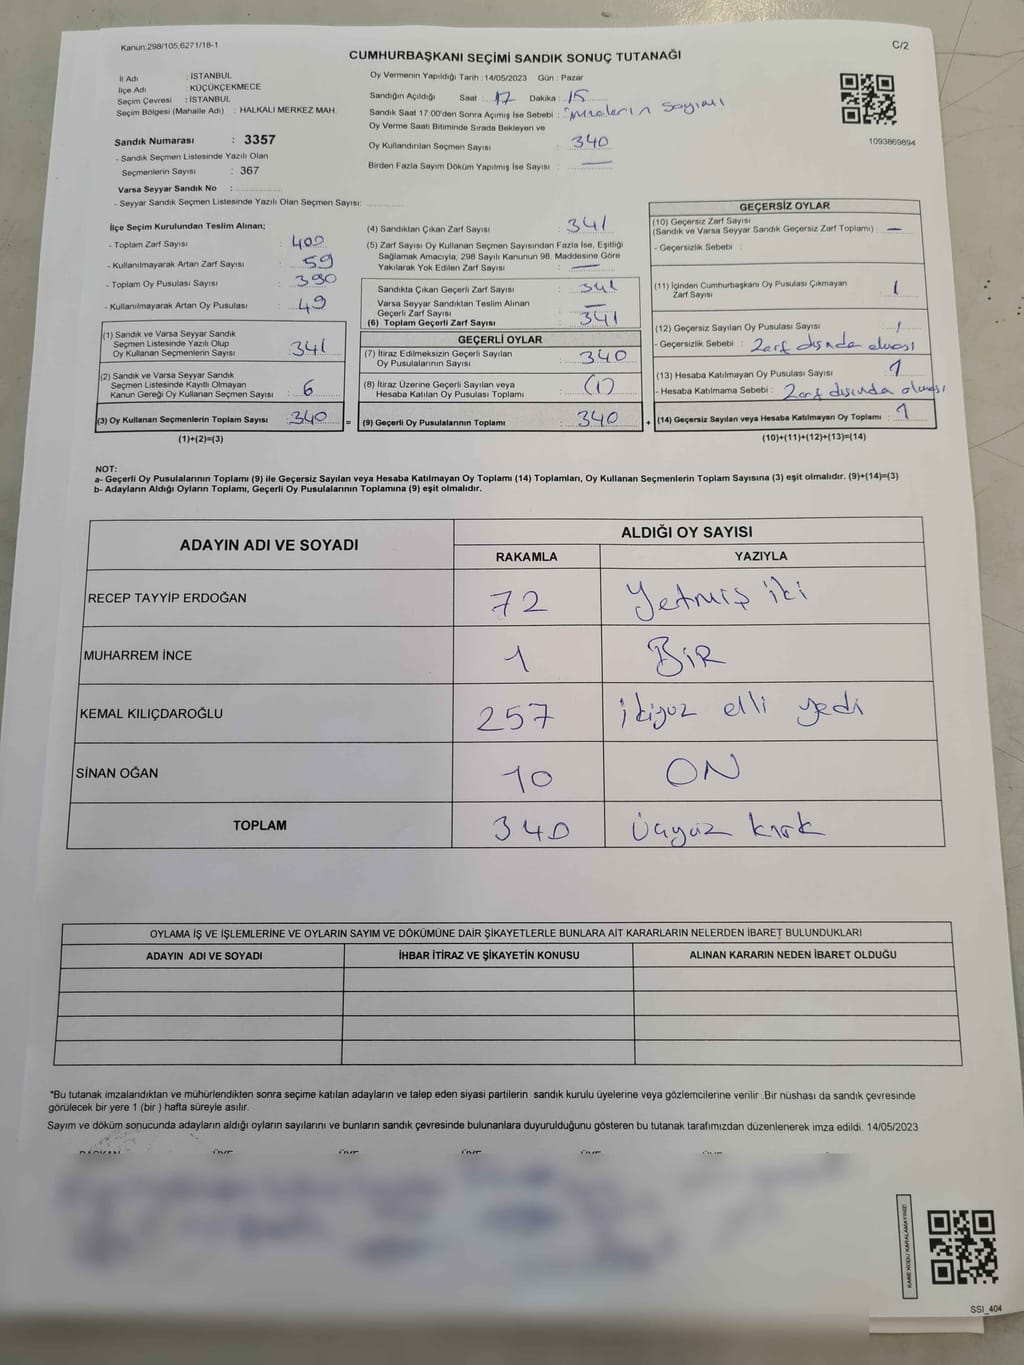 Kanun,298/105,6271/18-1
C/2
CUMHURBAŞKANI SEÇİMİ SANDIK SONUÇ TUTANAĞI
İl Adı : İSTANBUL
İlçe Adı : KÜÇÜKÇEKMECE
Seçim Çevresi : İSTANBUL
Seçim Bölgesi (Mahalle Adı) : HALKALI MERKEZ MAH.
Sandık Numarası : 3357
- Sandık Seçmen Listesinde Yazılı Olan
Seçmenlerin Sayısı : 367
Varsa Seyyar Sandık No :
- Seyyar Sandık Seçmen Listesinde Yazılı Olan Seçmen Sayısı:
Oy Vermenin Yapıldığı Tarih :14/05/2023 Gün : Pazar
Sandığın Açıldığı Saat : 17 Dakika : 15
Sandık Saat 17:00'den Sonra Açımış İse Sebebi : imzaların sayımı
Oy Verme Saati Bitiminde Sırada Bekleyen ve
Oy Kullandırılan Seçmen Sayısı : 340
Birden Fazla Sayım Döküm Yapılmış İse Sayısı : —
1093869894
İlçe Seçim Kurulundan Teslim Alınan;
- Toplam Zarf Sayısı : 400
- Kullanılmayarak Artan Zarf Sayısı : 59
- Toplam Oy Pusulası Sayısı : 390
- Kullanılmayarak Artan Oy Pusulası : 49
(1) Sandık ve Varsa Seyyar Sandık
Seçmen Listesinde Yazılı Olup
Oy Kullanan Seçmenlerin Sayısı : 341
(2) Sandık ve Varsa Seyyar Sandık
Seçmen Listesinde Kayıtlı Olmayan
Kanun Gereği Oy Kullanan Seçmen Sayısı : 6
(3) Oy Kullanan Seçmenlerin Toplam Sayısı : 340
(1)+(2)=(3)
(4) Sandıktan Çıkan Zarf Sayısı : 341
(5) Zarf Sayısı Oy Kullanan Seçmen Sayısından Fazla İse, Eşitliği
Sağlamak Amacıyla; 298 Sayılı Kanunun 98. Maddesine Göre
Yakılarak Yok Edilen Zarf Sayısı : —
Sandıkta Çıkan Geçerli Zarf Sayısı : 341
Varsa Seyyar Sandıktan Teslim Alınan
Geçerli Zarf Sayısı : —
(6) Toplam Geçerli Zarf Sayısı : 341
GEÇERLİ OYLAR
(7) İtiraz Edilmeksizin Geçerli Sayılan
Oy Pusulalarının Sayısı : 340
(8) İtiraz Üzerine Geçerli Sayılan veya
Hesaba Katılan Oy Pusulası Toplamı : (1)
= (9) Geçerli Oy Pusulalarının Toplamı : 340
GEÇERSİZ OYLAR
(10) Geçersiz Zarf Sayısı
(Sandık ve Varsa Seyyar Sandık Geçersiz Zarf Toplamı) : —
- Geçersizlik Sebebi :
(11) İçinden Cumhurbaşkanı Oy Pusulası Çıkmayan
Zarf Sayısı : 1
(12) Geçersiz Sayılan Oy Pusulası Sayısı : 1
- Geçersizlik Sebebi : Zarf dışında olması
(13) Hesaba Katılmayan Oy Pusulası Sayısı : 1
- Hesaba Katılmama Sebebi : Zarf dışında olması
+ (14) Geçersiz Sayılan veya Hesaba Katılmayan Oy Toplamı : 1
(10)+(11)+(12)+(13)=(14)
NOT:
a- Geçerli Oy Pusulalarının Toplamı (9) ile Geçersiz Sayılan veya Hesaba Katılmayan Oy Toplamı (14) Toplamları, Oy Kullanan Seçmenlerin Toplam Sayısına (3) eşit olmalıdır. (9)+(14)=(3)
b- Adayların Aldığı Oyların Toplamı, Geçerli Oy Pusulalarının Toplamına (9) eşit olmalıdır.
ADAYIN ADI VE SOYADI
ALDIĞI OY SAYISI
RAKAMLA YAZIYLA
RECEP TAYYİP ERDOĞAN 72 Yetmiş iki
MUHARREM İNCE 1 BİR
KEMAL KILIÇDAROĞLU 257 ikiyüz elli yedi
SİNAN OĞAN 10 ON
TOPLAM 340 Üçyüz kırk
OYLAMA İŞ VE İŞLEMLERİNE VE OYLARIN SAYIM VE DÖKÜMÜNE DAİR ŞİKAYETLERLE BUNLARA AİT KARARLARIN NELERDEN İBARET BULUNDUKLARI
ADAYIN ADI VE SOYADI İHBAR İTİRAZ VE ŞİKAYETİN KONUSU ALINAN KARARIN NEDEN İBARET OLDUĞU
*Bu tutanak imzalandıktan ve mühürlendikten sonra seçime katılan adayların ve talep eden siyasi partilerin sandık kurulu üyelerine veya gözlemcilerine verilir .Bir nüshası da sandık çevresinde
görülecek bir yere 1 (bir ) hafta süreyle asılır.
Sayım ve döküm sonucunda adayların aldığı oyların sayılarını ve bunların sandık çevresinde bulunanlara duyurulduğunu gösteren bu tutanak tarafımızdan düzenlenerek imza edildi. 14/05/2023
KARE KODU KARALAMAYINIZ!
SSI_404